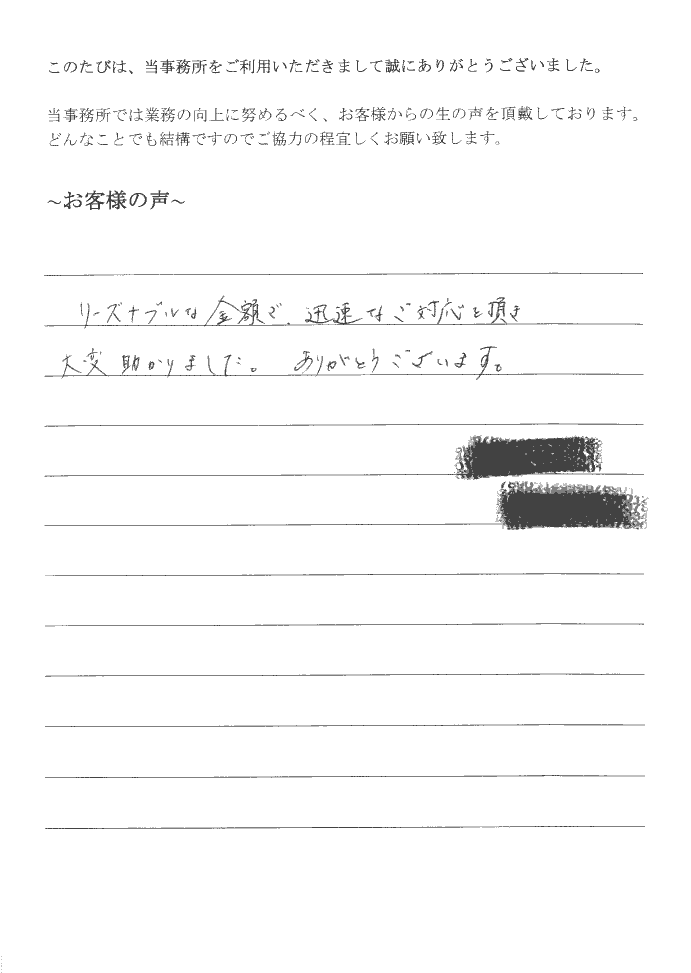 このたびは、当事務所をご利用いただきまして誠にありがとうございました。
当事務所では業務の向上に努めるべく、お客様からの生の声を頂戴しております。
どんなことでも結構ですのでご協力の程宜しくお願い致します。
~お客様の声~
リーズナブルな金額で、迅速なご対応を頂き
大変助かりました。 ありがとうございます。